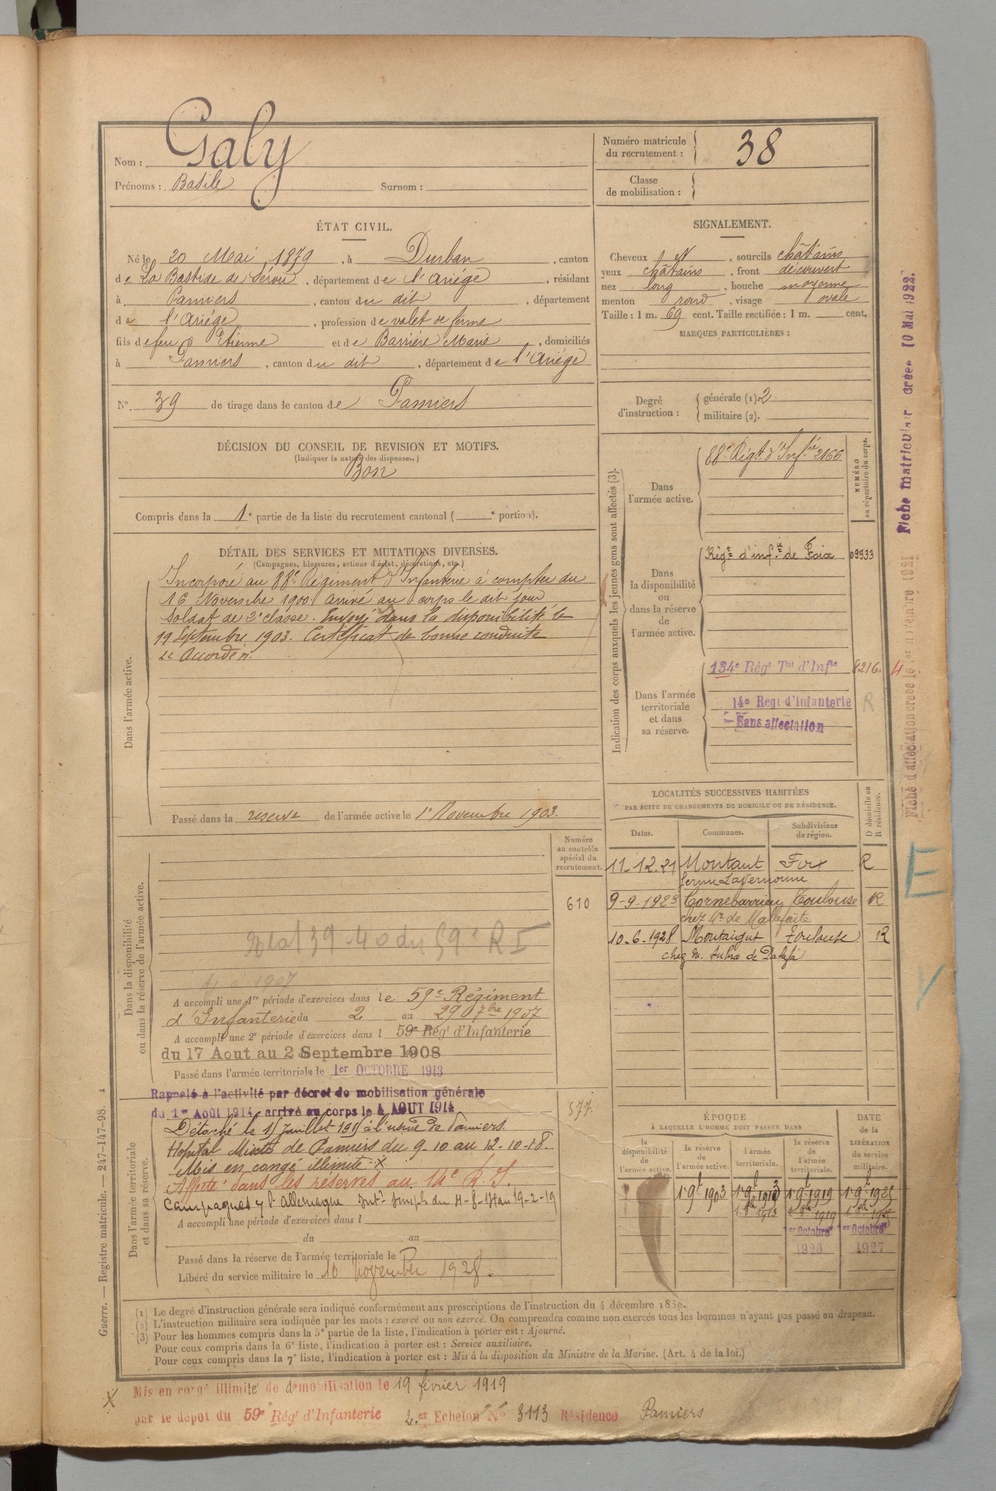 Nom : Galy
Prénoms : Basile Surnom :
Numéro matricule du recrutement : 38
Classe de mobilisation :
ÉTAT CIVIL.
Né le 20 Mai 1879, à Durban, canton
de La Bastide de Sérou, département de l'Ariège, résidant
à Pamiers, canton du dit, département
de l'Ariège, profession de valet de ferme
fils de feu Etienne et de Barrière Marie, domiciliés
à Pamiers, canton du dit, département de l'Ariège
N° 39 de tirage dans le canton de Pamiers
DÉCISION DU CONSEIL DE REVISION ET MOTIFS.
(Indiquer la nature des dispenses.)
Bon
Compris dans la 1e partie de la liste du recrutement cantonal ( e portion).
SIGNALEMENT.
Cheveux, sourcils châtains
yeux châtains, front découvert
nez long, bouche moyenne
menton rond, visage ovale
Taille : 1 m. 69 cent. Taille rectifiée : 1 m. cent.
MARQUES PARTICULIÈRES :
Degré d'instruction :
générale (1). 2
militaire (2).
DÉTAIL DES SERVICES ET MUTATIONS DIVERSES.
(Campagnes, blessures, actions d'éclat, décorations, etc.)
Dans l'armée active.
Incorporé au 88e Régiment d'Infanterie à compter du
16 Novembre 1900 arrivé au corps le dit jour
Soldat de 2e classe. Envoyé dans la disponibilité le
19 Septembre 1903. Certificat de bonne conduite
Accordé.
Passé dans la réserve de l'armée active le 1er Novembre 1903.
Indication des corps auxquels les jeunes gens sont affectés (3).
NUMÉRO au répertoire du corps.
Dans l'armée active.
88e Régt d'Infrie 2166
Dans la disponibilité ou dans la réserve de l'armée active.
Régt d'infie de Foix 09533
Dans l'armée territoriale et dans sa réserve.
134e Régt Tal d'Infie 8216
14e Regt d'Infanterie R
Sans affectation
Fiche matriculaire créée 10 Mai 1922.
LOCALITÉS SUCCESSIVES HABITÉES
PAR SUITE DE CHANGEMENTS DE DOMICILE OU DE RÉSIDENCE.
Dates. Communes. Subdivisions de région. D domicile ou R résidence.
11.12.21 Montaut Foix R
9-9-1923 Cornebarrieu Toulouse R
10.6.1928 Montaigut Toulouse R
Dans la disponibilité ou dans la réserve de l'armée active.
Numéro au contrôle spécial du recrutement.
610
A accompli une 1re période d'exercices dans le 59e Régiment
d'Infanterie du 2 au 29 1907
A accompli une 2e période d'exercices dans l 59e Régt d'Infanterie
du 17 Aout au 2 Septembre 1908
Passé dans l'armée territoriale le 1er OCTOBRE 1913
Dans l'armée territoriale et dans sa réserve.
577
Rappelé à l'activité par décret de mobilisation générale
du 1er Août 1914, arrivé au corps le 4 AOUT 1914
Détaché le Juillet à l'usine de Pamiers
Hôpital Mixte de Pamiers du 9-10 au 12-10-18.
Mis en congé illimité X
Affecté dans les réserves au 14e R.I.
Campagnes l'Allemagne
A accompli une période d'exercices dans l
du au
Passé dans la réserve de l'armée territoriale le
Libéré du service militaire le 10 novembre 1928.
ÉPOQUE
À LAQUELLE L'HOMME DOIT PASSER DANS
la disponibilité de l'armée active.
la réserve de l'armée active.
l'armée territoriale.
la réserve de l'armée territoriale.
DATE de la LIBÉRATION du service militaire.
1903 1913 1919
1er Octobre 1er Octobre
1920 1927
(1) Le degré d'instruction générale sera indiqué conformément aux prescriptions de l'instruction du 4 décembre 1889.
(2) L'instruction militaire sera indiquée par les mots : exercé ou non exercé. On comprendra comme non exercés tous les hommes n'ayant pas passé au drapeau.
(3) Pour les hommes compris dans la 5e partie de la liste, l'indication à porter est : Ajourné.
Pour ceux compris dans la 6e liste, l'indication à porter est : Service auxiliaire.
Pour ceux compris dans la 7e liste, l'indication à porter est : Mis à la disposition du Ministre de la Marine. (Art. 4 de la loi.)
Guerre. — Registre matricule. — 247-147-98.
X Mis en congé illimité de démobilisation le 19 février 1919
par le dépôt du 59e Régt d'Infanterie Echelon N° 3113 Résidence Pamiers